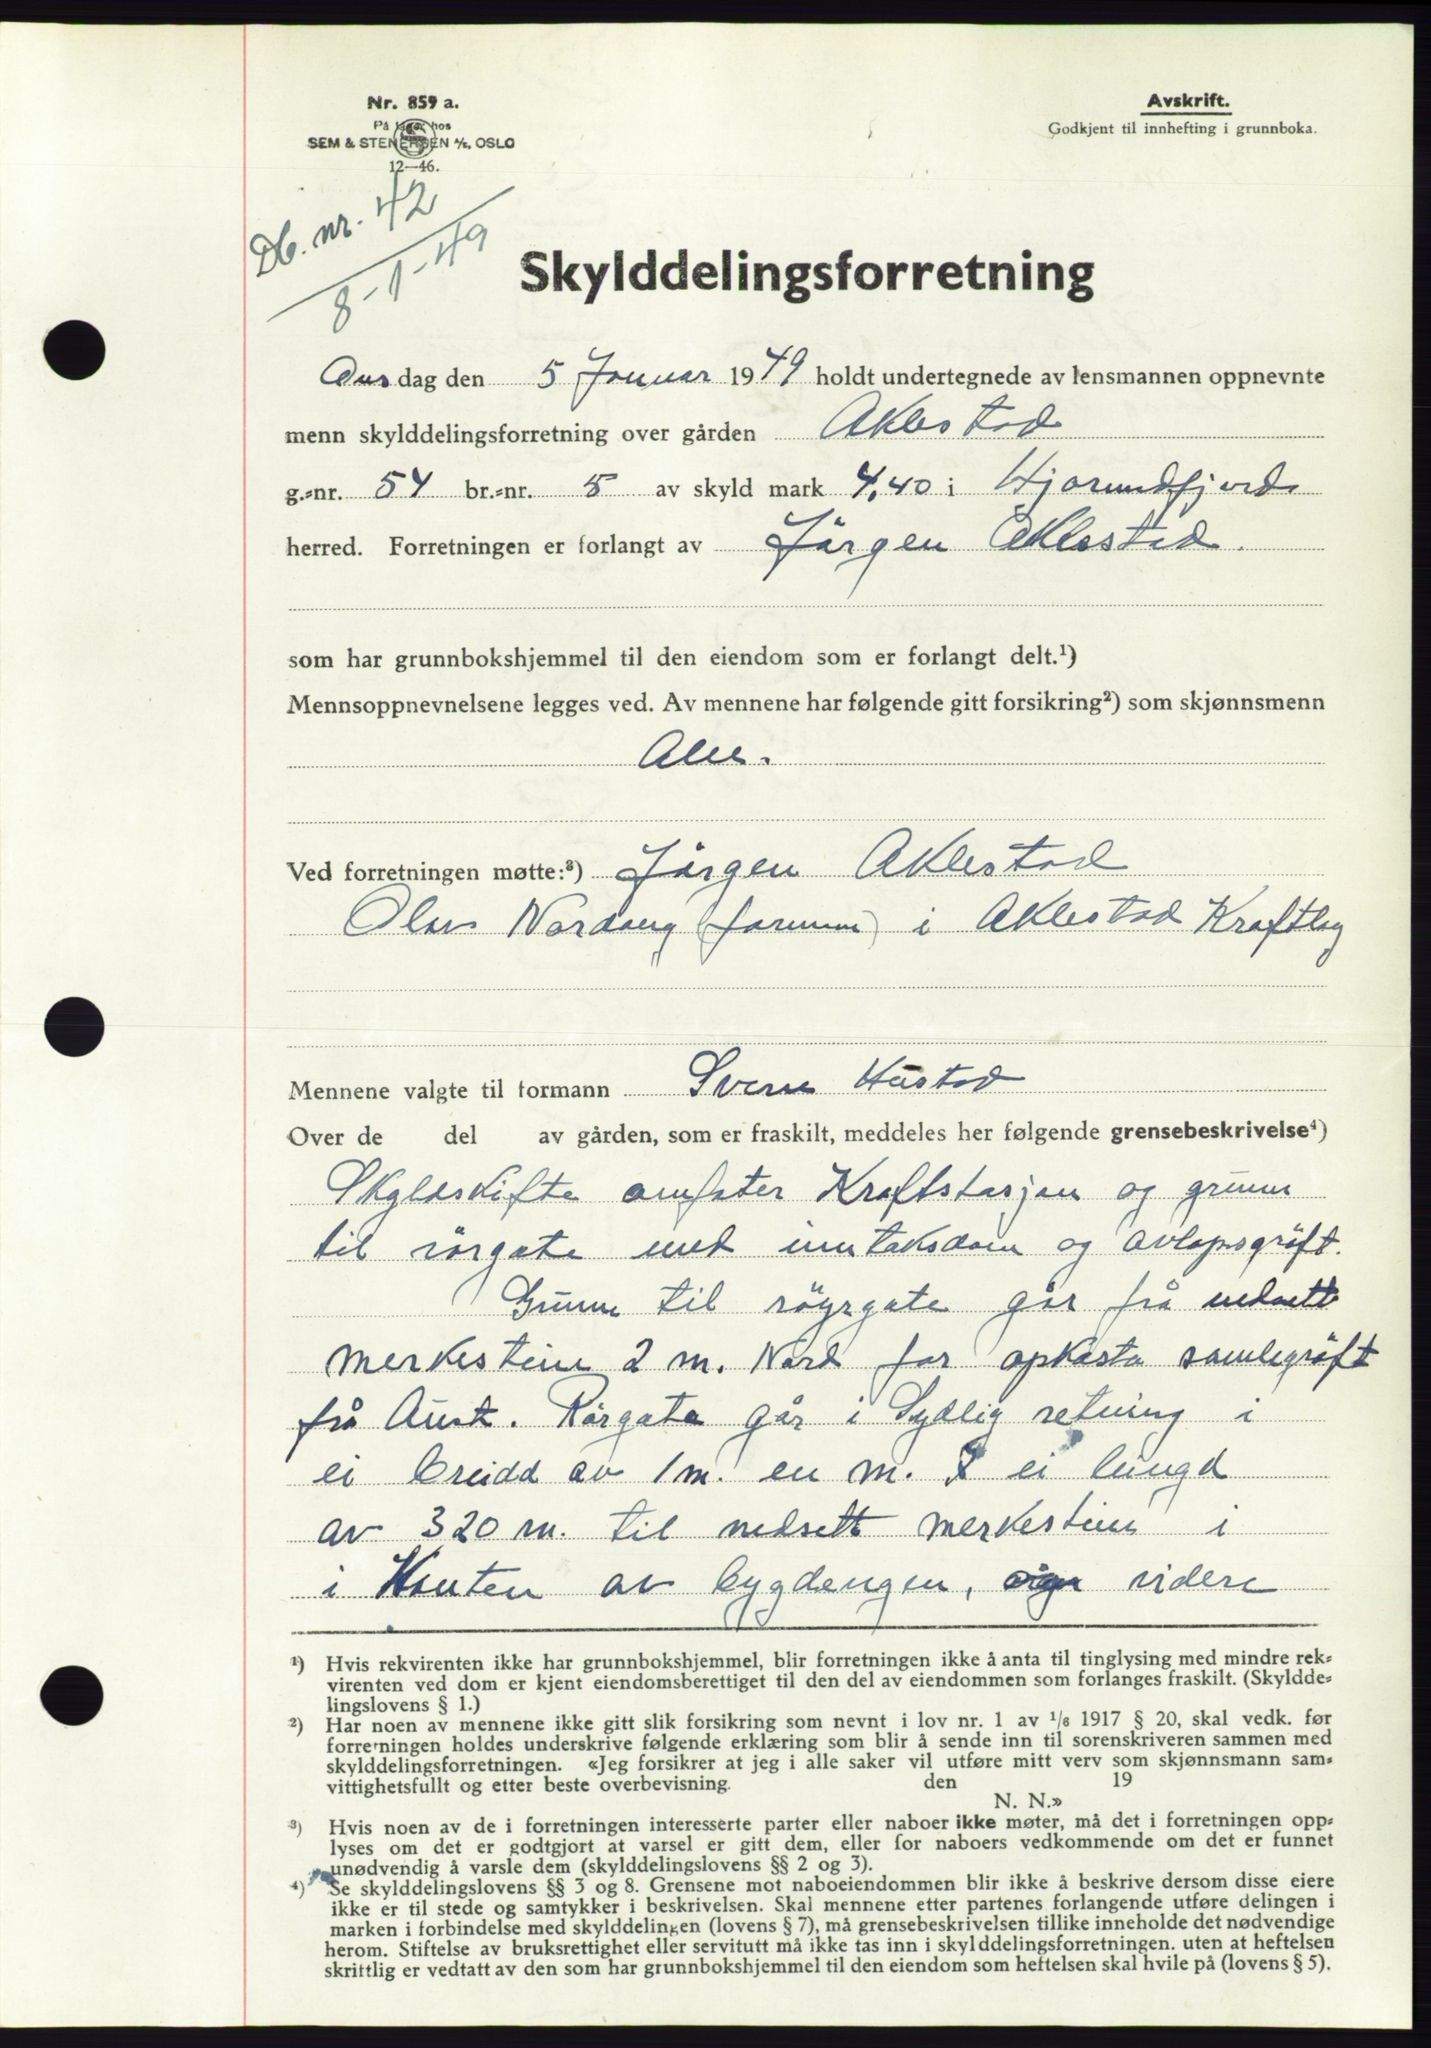 Nr. 859 a.
På lager hos
SEM & STENERSEN A/S, OSLO
12—46.
Avskrift.
Godkjent til innhefting i grunnboka.
Db. nr. 42
8-1-49
Skylddelingsforretning
Ons dag den 5 Januar 1949 holdt undertegnede av lensmannen oppnevnte
menn skylddelingsforretning over gården Aklestad
g.=nr. 54 br.=nr. 5 av skyld mark 4,40 i Hjørundfjord
herred. Forretningen er forlangt av Jörgen Aklestad.
som har grunnbokshjemmel til den eiendom som er forlangt delt.¹)
Mennsoppnevnelsene legges ved. Av mennene har følgende gitt forsikring²) som skjønnsmenn
Alle.
Ved forretningen møtte:³) Jörgen Aklestad
Olav Nordang (formann) i Aklestad Kraftlag
Mennene valgte til formann Sverre Hustad
Over de del av gården, som er fraskilt, meddeles her følgende grensebeskrivelse⁴)
Skyldskifte omfater Kraftstasjon og grunn
til rörgate med inntaksdam og avlopsgröft.
Grunn til röyrgate går frå nedsett
merkestein 2 m. Nord for opkasta samlegröft
frå Aust. Rörgata går i Sydlig retning i
ei breidd av 1 m. en m. I ei lengd
av 320 m. til nedsett merkestein i
i Kanten av bygdevegen, videre
¹) Hvis rekvirenten ikke har grunnbokshjemmel, blir forretningen ikke å anta til tinglysing med mindre rek=
virenten ved dom er kjent eiendomsberettiget til den del av eiendommen som forlanges fraskilt. (Skyldde=
lingslovens § 1.)
²) Har noen av mennene ikke gitt slik forsikring som nevnt i lov nr. 1 av ¹/₆ 1917 § 20, skal vedk. før
forretningen holdes underskrive følgende erklæring som blir å sende inn til sorenskriveren sammen med
skylddelingsforretningen. «Jeg forsikrer at jeg i alle saker vil utføre mitt verv som skjønnsmann sam=
vittighetsfullt og etter beste overbevisning. den 19
N. N.»
³) Hvis noen av de i forretningen interesserte parter eller naboer ikke møter, må det i forretningen opp=
lyses om det er godtgjort at varsel er gitt dem, eller for naboers vedkommende om det er funnet
unødvendig å varsle dem (skylddelingslovens §§ 2 og 3).
⁴) Se skylddelingslovens §§ 3 og 8. Grensene mot naboeiendommen blir ikke å beskrive dersom disse eiere
ikke er til stede og samtykker i beskrivelsen. Skal mennene etter partenes forlangende utføre delingen i
marken i forbindelse med skylddelingen (lovens § 7), må grensebeskrivelsen tillike inneholde det nødvendige
herom. Stiftelse av bruksrettighet eller servitutt må ikke tas inn i skylddelingsforretningen. uten at heftelsen
skriftlig er vedtatt av den som har grunnbokshjemmel til den eiendom som heftelsen skal hvile på (lovens § 5).